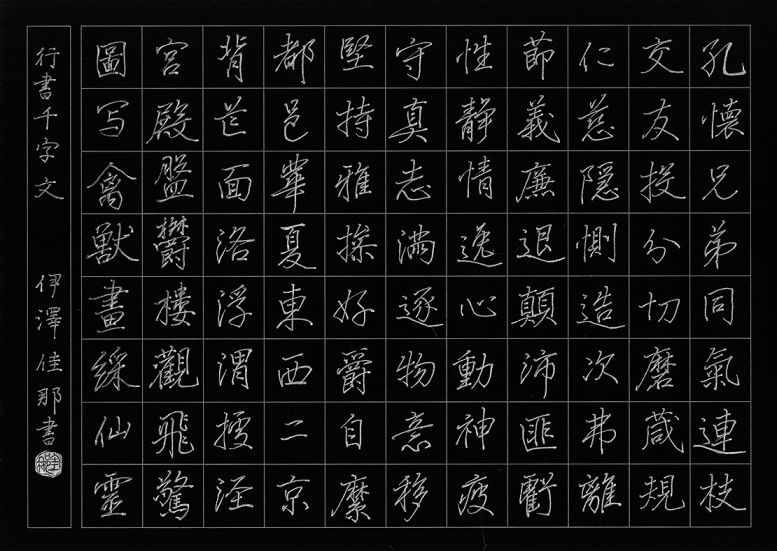 孔懐兄弟同氣連枝
交友投分切磨葴規
仁慈隱惻造次弗離
節義廉退顛沛匪虧
性静情逸心動神疲
守真志満逐物意移
堅持雅操好爵自縻
都邑華夏東西二京
背芒面洛浮渭據涇
宮殿盤欝樓觀飛驚
圖写禽獸畫綵仙靈
行書千字文 伊澤佳那書